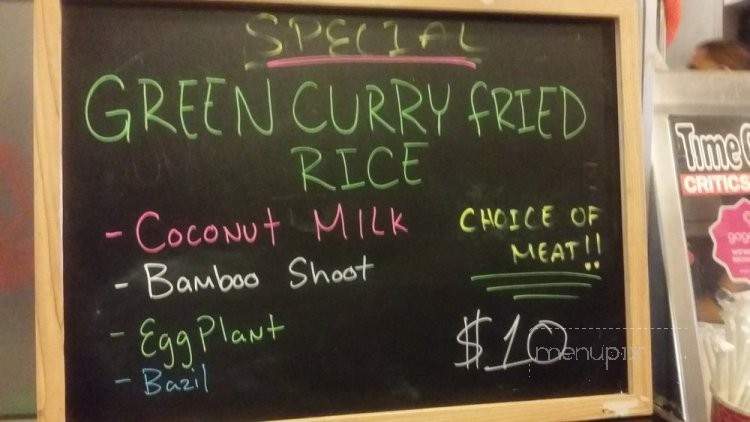 SPECIAL
GREEN CURRY FRIED
RICE
- COCONUT MILK
- Bamboo Shoot
- EggPlant
- Bazil
CHOICE OF
MEAT!!
$10
menupix
Time
CRITICS